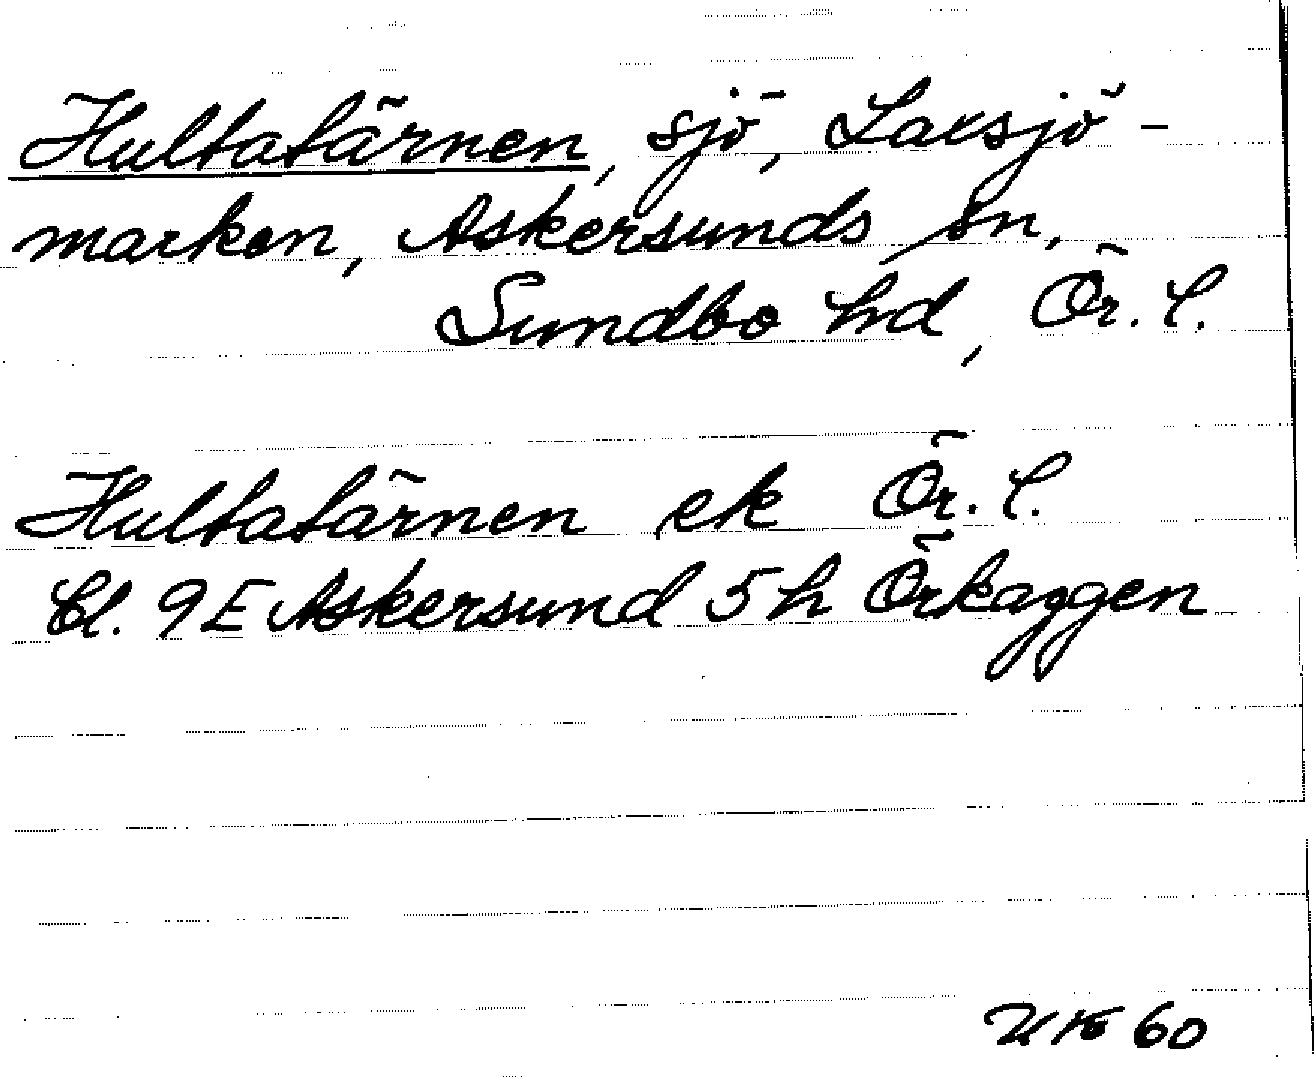 Hultatärnen, sjö, Laxsjö-
marken, Askersunds sn,
Sundbo hd, Ör. l.
Hultatärnen ek Ör. l.
bl. 9E Askersund 5h Örkaggen
60